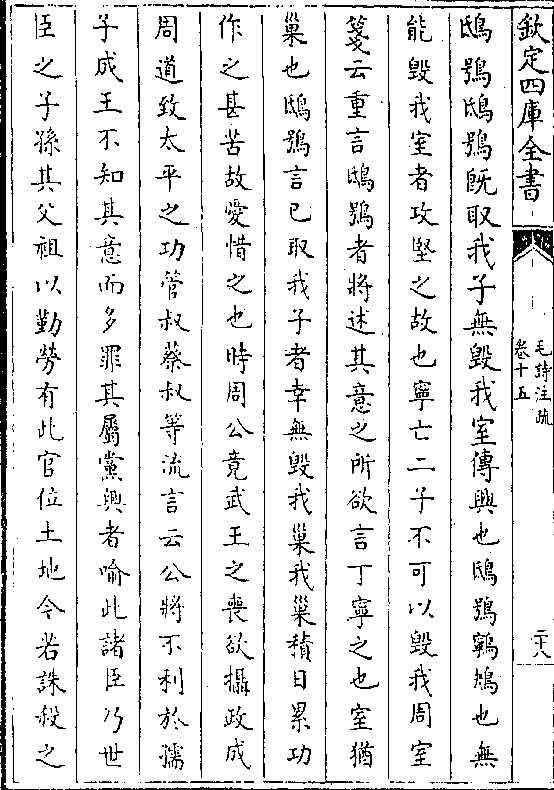 欽定四庫全書
毛詩注疏
卷十五
二十八
鴟鴞鴟鴞既取我子無毀我室傳興也鴟鴞鸋鴂也無
能毀我室者攻堅之故也寧亡二子不可以毀我周室
箋云重言鴟鴞者將述其意之所欲言丁寧之也室猶
巢也鴟鴞言已取我子者幸無毀我巢我巢積日累功
作之甚苦故愛惜之也時周公竟武王之喪欲攝政成
周道致太平之功管叔蔡叔等流言云公將不利於孺
子成王不知其意而多罪其屬黨興者喻此諸臣乃世
臣之子孫其父祖以勤勞有此官位土地今若誅殺之